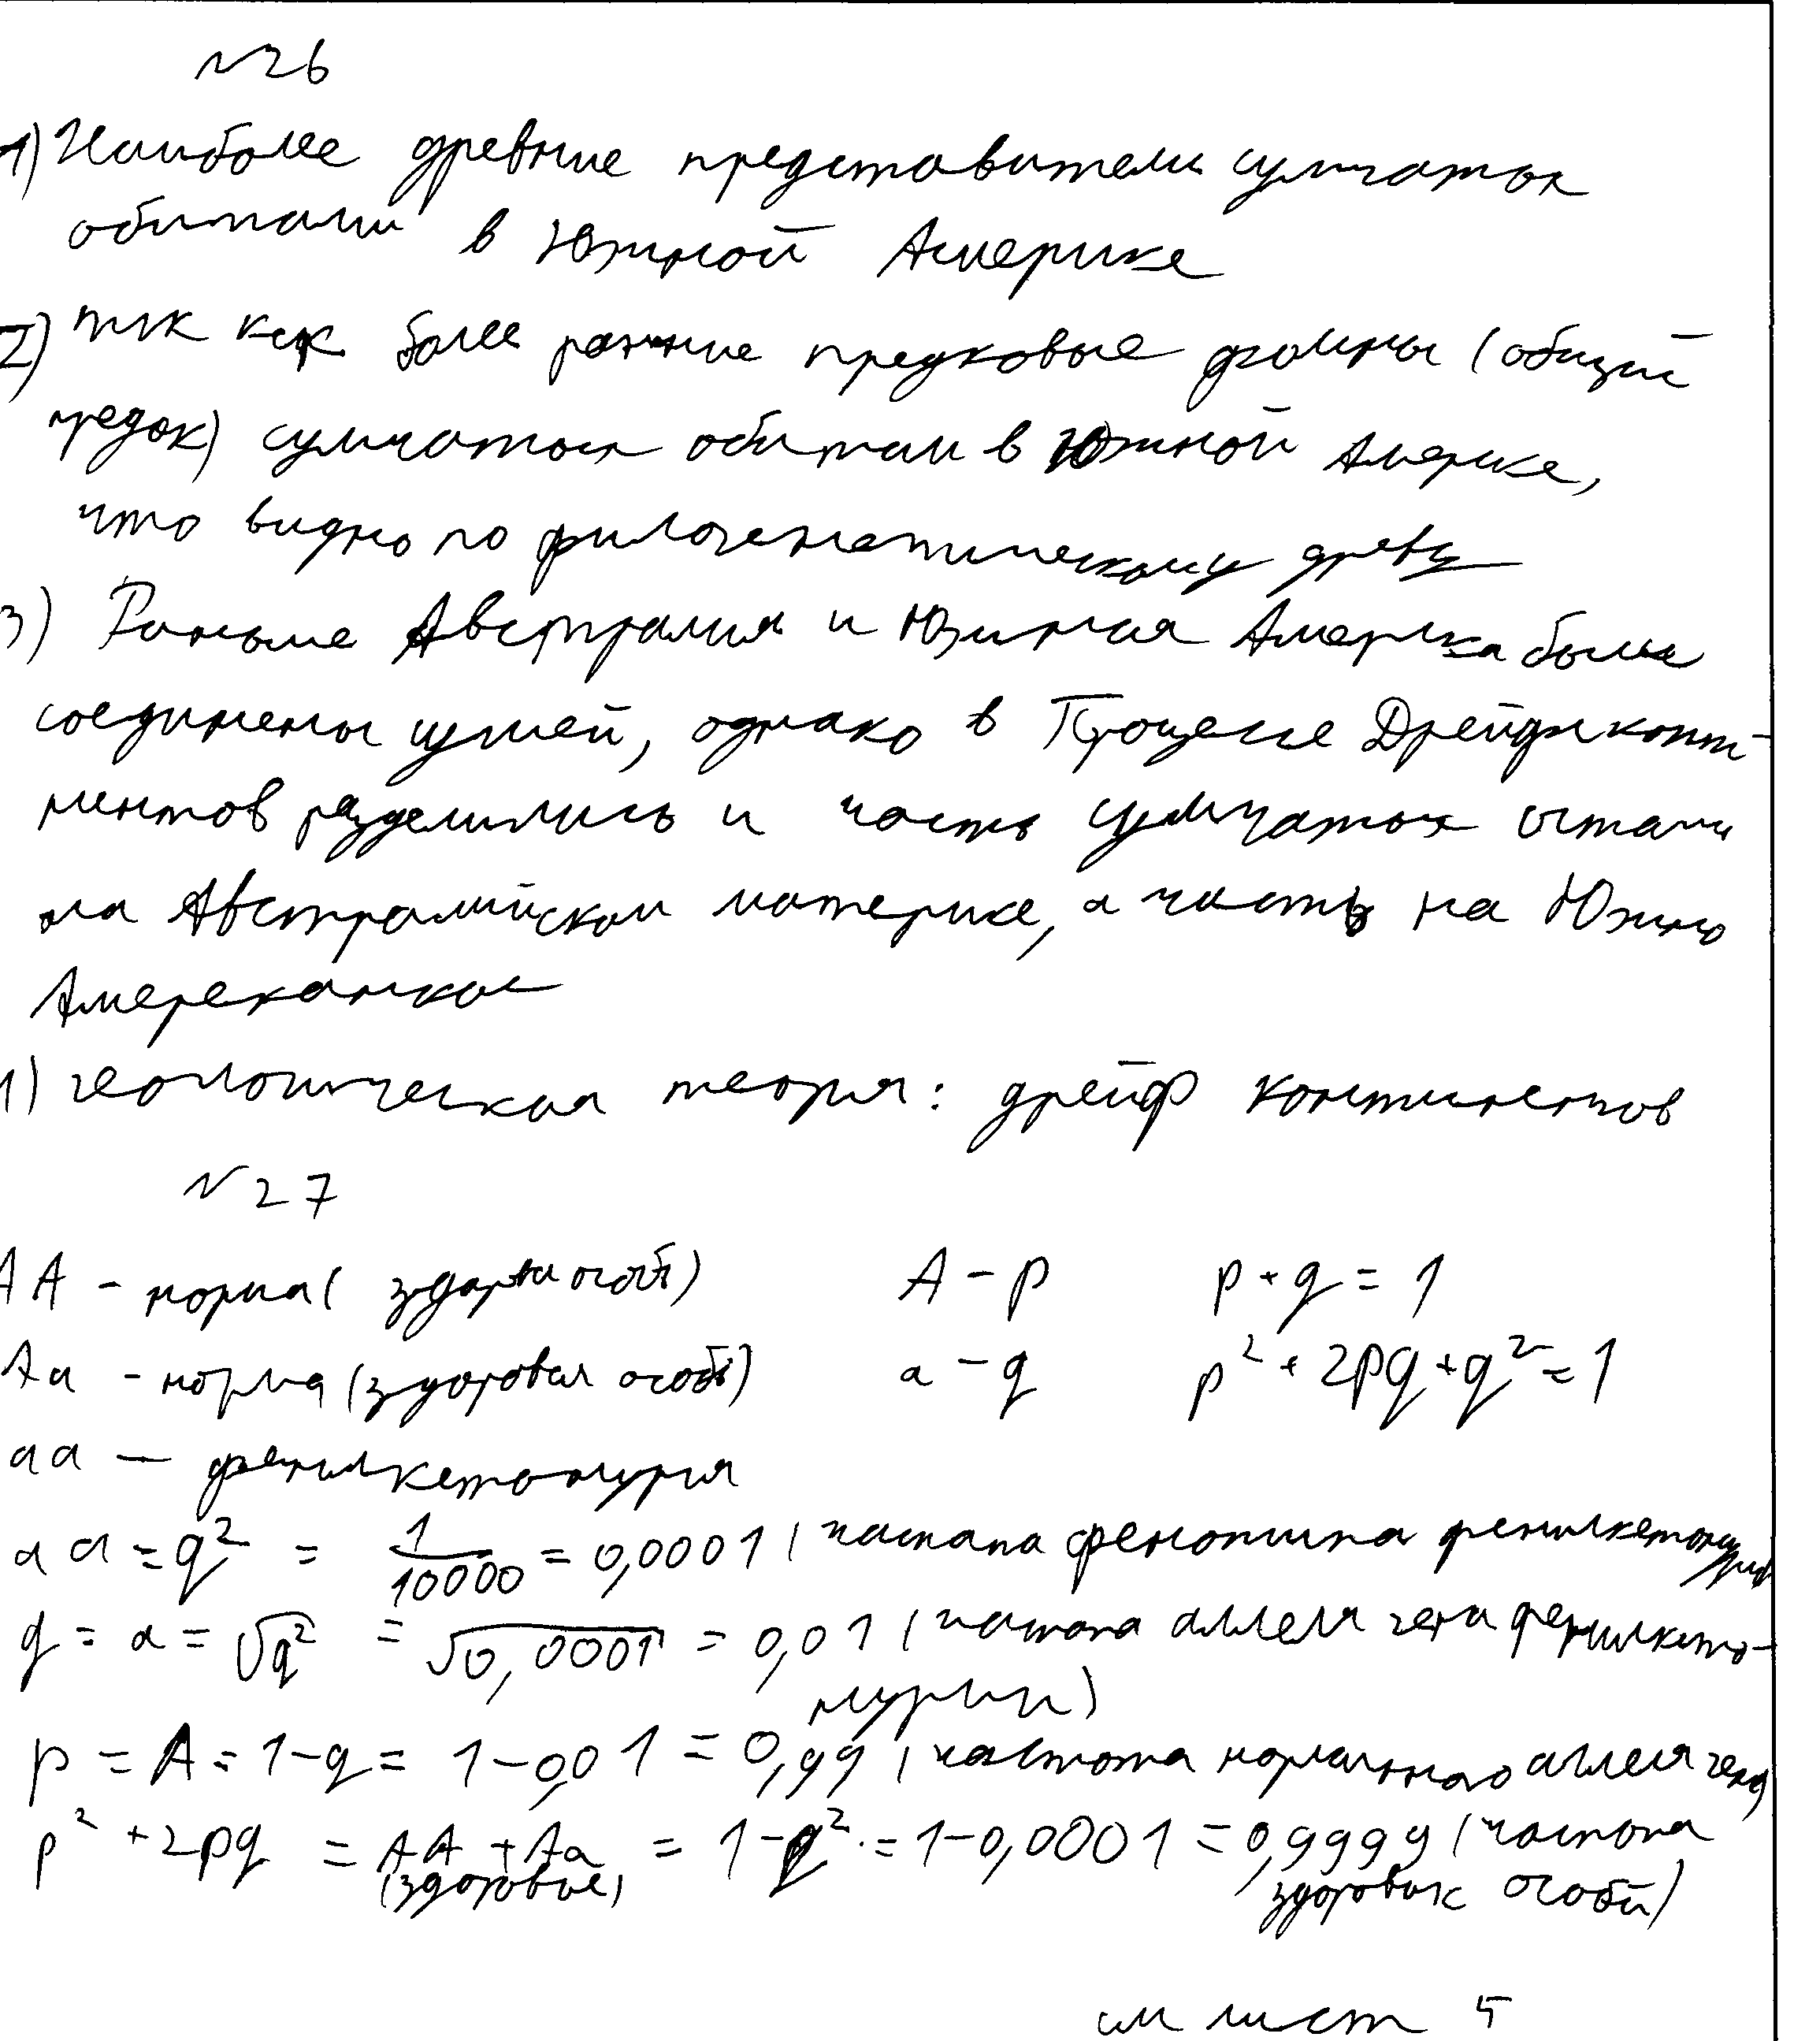 №26
1) Наиболее древние представители сумчатых
обитали в Южной Америке
2) так как более ранние предковые формы (общий
предок) сумчатых обитали в Южной Америке,
что видно по филогенетическому древу
3) Раньше Австралия и Южная Америка были
соединены сушей, однако в процессе Дрейфа конти-
нентов разделились и часть сумчатых остали
на Австралийском материке, а часть на Южно
Американском
4) геологическая теория: дрейф континентов
№27
AA - норма (здоровая особь) A - p p + q = 1
Aa - норма (здоровая особь) a - q p² + 2pq + q² = 1
aa — фенилкетонурия
aa = q² = 1/10000 = 0,0001 (частота фенотипа фенилкетонурии
q = a = √q² = √0,0001 = 0,01 (частота аллеля гена фенилкето-
нурии)
p = A = 1-q = 1-0,01 = 0,99 (частота нормального аллеля гена)
p² + 2pq = AA + Aa = 1-q² = 1-0,0001 = 0,9999 (частота
(здоровые) здоровых особей)
см лист 5